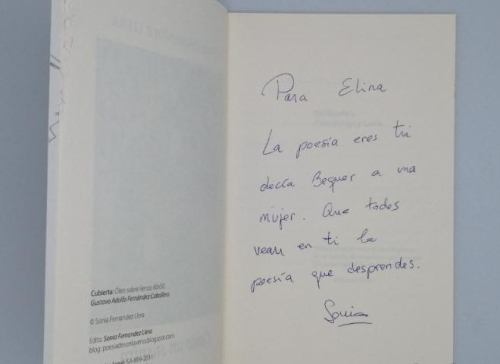 Para Elina
La poesía eres tú
decía Bequer a una
mujer. Que todos
vean en ti la
poesía que desprendes.
Sonia
Cubierta: Óleo sobre lienzo 60x50,
Gustavo Adolfo Fernández Caballero
© Sonia Fernández Llera
Edita: Sonia Fernández Llera